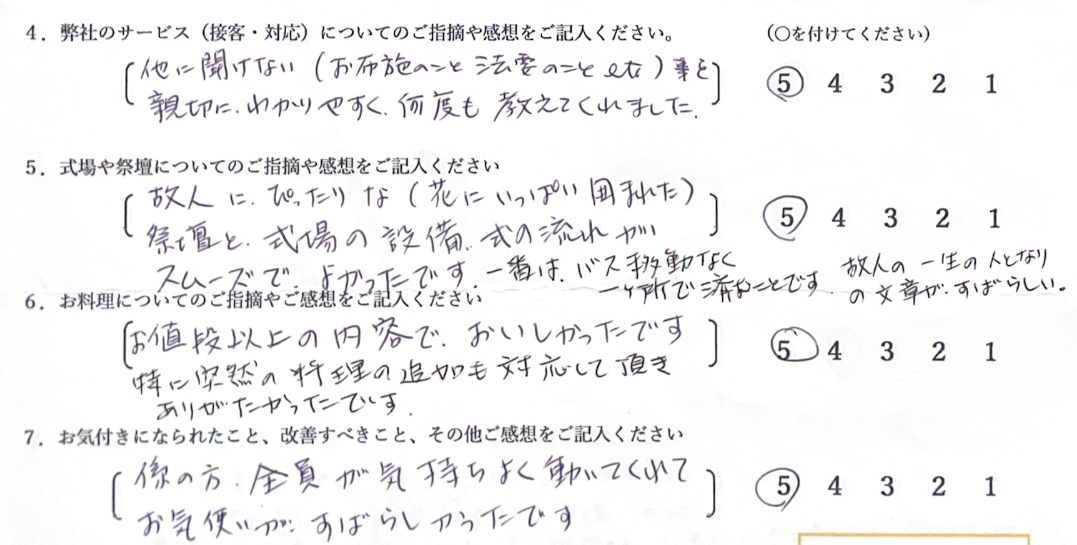 4．弊社のサービス（接客・対応）についてのご指摘や感想をご記入ください。　（○を付けてください）
他に聞けない（お布施のこと 法要のこと etc）事を　5 4 3 2 1
親切に、わかりやすく、何度も 教えてくれました。
5．式場や祭壇についてのご指摘や感想をご記入ください
故人に、ぴったりな（花にいっぱい囲まれた）　5 4 3 2 1
祭壇と、式場の設備、式の流れが
スムーズで、よかったです。一番は、バス移動なく
一ヶ所で済むことです。故人の一生の人となり
の文章が、すばらしい。
6．お料理についてのご指摘やご感想をご記入ください
お値段以上の内容で、おいしかったです　5 4 3 2 1
特に突然の料理の追加も対応して頂き
ありがたかったです。
7．お気付きになられたこと、改善すべきこと、その他ご感想をご記入ください
係の方、全員が気持ちよく動いてくれて　5 4 3 2 1
お気使いが、すばらしかったです